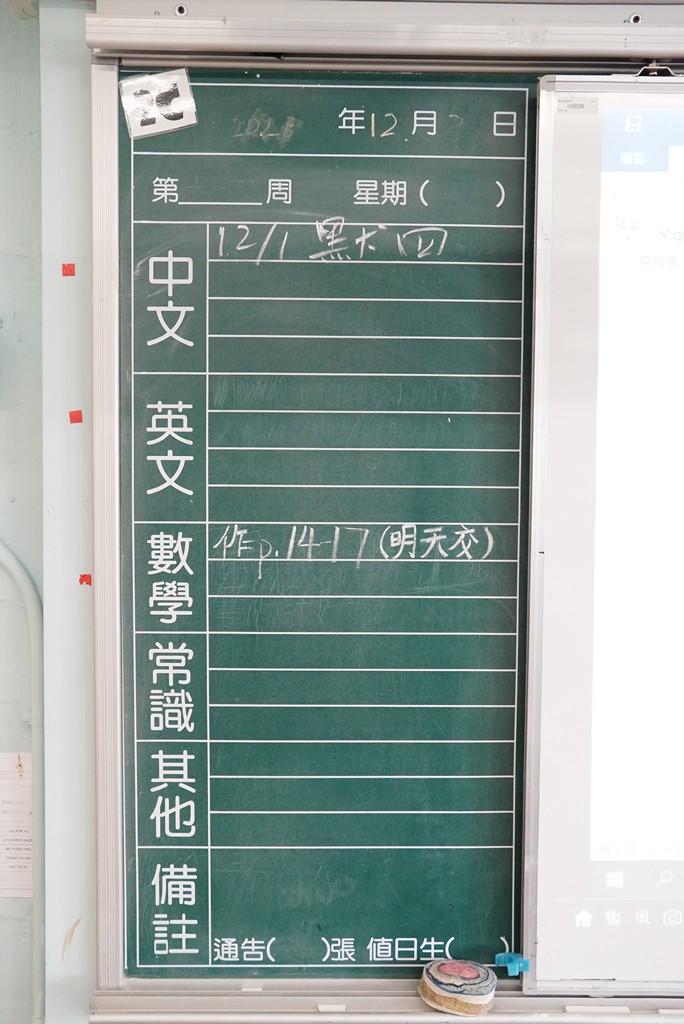 2C
年12月 日
第______周 星期( )
中文
12/1 默四
英文
數學
作p.14-17(明天交)
常識
其他
備註
通告( )張 值日生( )